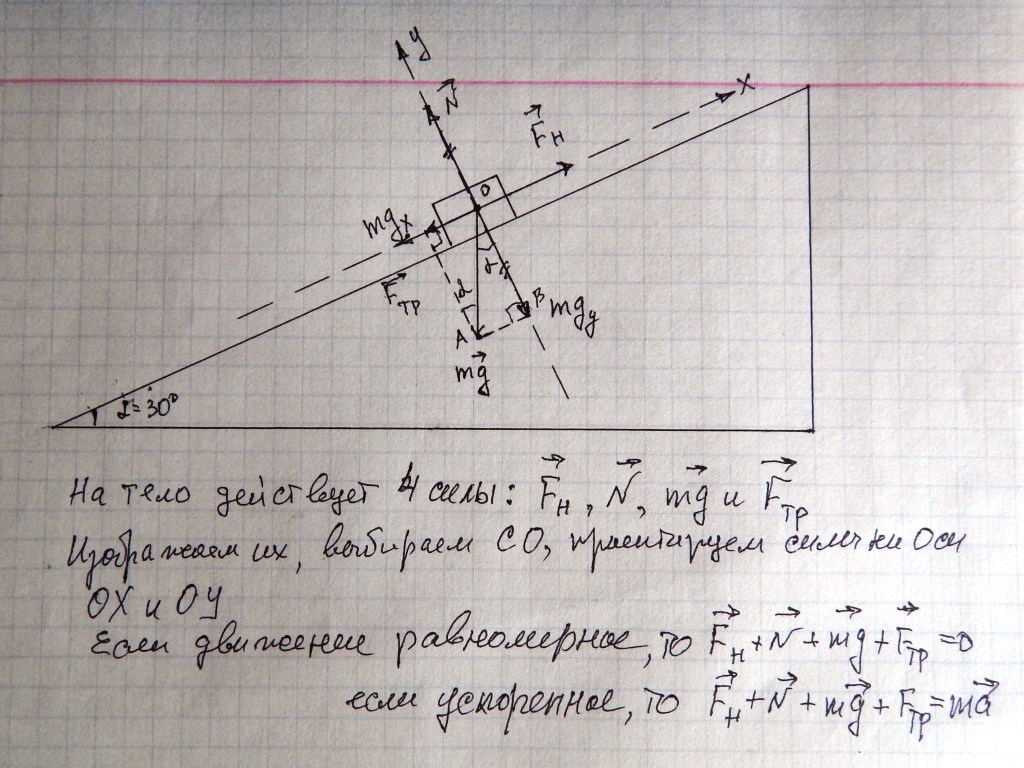 y
N
X
F н
O
mg x
α
F тр
α
B
mg y
A
mg
α = 30°
На тело действует 4 силы: F н, N, mg и F тр
Изображаем их, выбираем СО, проектируем силы на оси
OX и OY
Если движение равномерное, то F н + N + mg + F тр = 0
если ускоренное, то F н + N + mg + F тр = ma